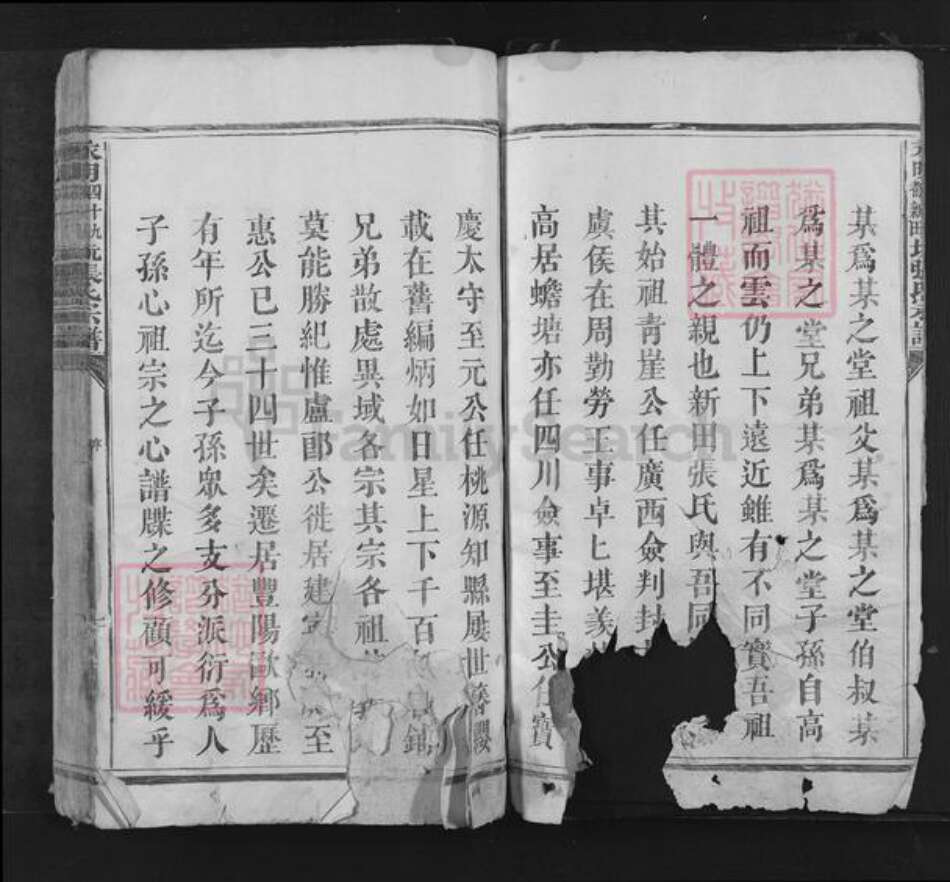 某爲某之堂祖父某爲某之堂伯叔某
爲某之堂兄弟某爲某之堂子孫自高
祖而雲仍上下遠近雖有不同實吾祖
一體之親也新田張氏與吾同
其始祖青崖公任廣西僉判封
虞侯在周勤勞王事卓匕堪羨
高居蟾塘亦任四川僉事至圭公任寶
慶太守至元公任桃源知縣屢世簪纓
載在舊編炳如日星上下千百
兄弟散處異域各宗其宗各祖
莫能勝紀惟盧郎公徙居建 至
惠公已三十四世矣遷居豐陽歐鄉歷
有年所迄今子孫眾多支分派衍爲人
子孫心祖宗之心譜牒之修顧可緩乎
張氏宗譜
FamilySearch